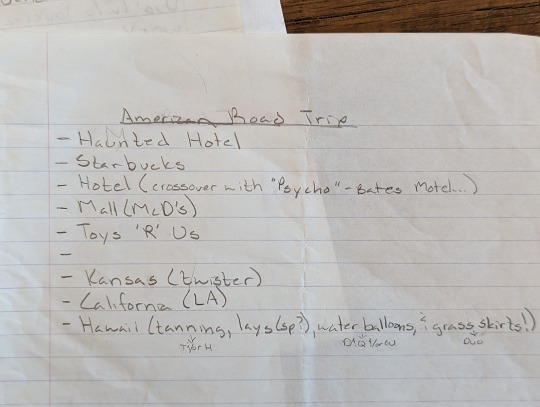 American Road Trip
- Haunted Hotel
- Starbucks
- Hotel (crossover with "Psycho" - Bates Motel...)
- Mall (McD's)
- Toys 'R' Us
-
- Kansas (twister)
- California (LA)
- Hawaii (tanning, lays (sp?), water balloons, & grass skirts!)
Duo